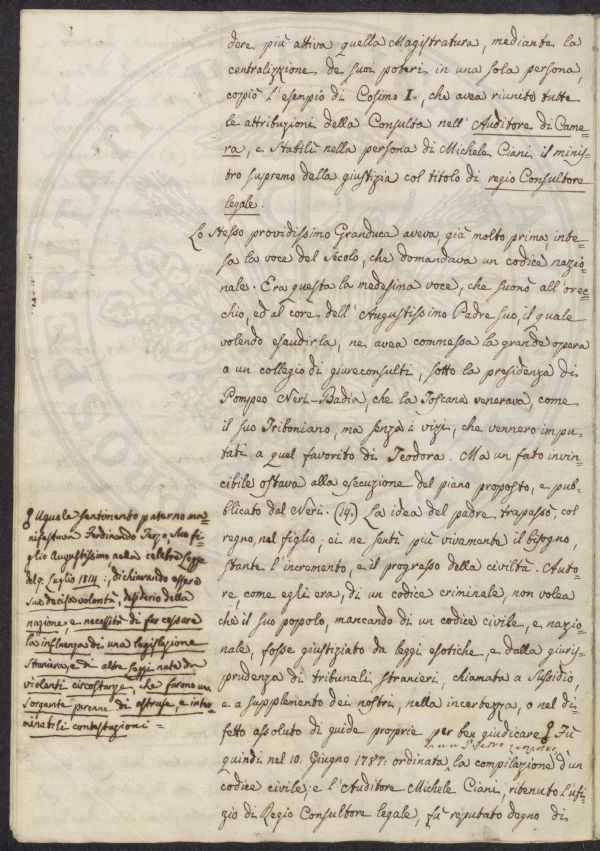 dere più attiva quella Magistratura, mediante la
centralizzione de' suoi poteri in una sola persona,
copiò l'esempio di Cosimo I., che avea riunite tutte
le attribuzioni della Consulta nell'Auditore di Came=
ra, e stabilì nella persona di Michele Ciani, il minis=
tro supremo della giustizia col titolo di regio Consultore
legale.
Lo stesso providissimo Granduca aveva, già molto prima, inte=
sa la voce del secolo, che domandava un codice nazio=
nale. Era questa la medesima voce, che suonò all'orec=
chio, ed al core dell'Augustissimo Padre suo, il quale
volendo esaudirla, ne avea commessa la grande opera
a un collegio di giureconsulti, sotto la presidenza di
Pompeo Neri-Badia, che la Toscana venerava, come
il suo Triboniano, ma senza i vizi, che vennero impu=
tati a quel favorito di Teodora. Ma un fato invin=
cibile ostava alla esecuzione del piano proposto, e pub=
blicato dal Neri. (14.) La idea del padre trapassò, col
regno, nel figlio, ei ne sentì più vivamente il bisogno,
stante l'incremento, e il progresso della civiltà. Auto=
re, come egli era, di un codice criminale, non volea
che il suo popolo, mancando di un codice civile, e nazio=
nale, fosse giustiziato da leggi esotiche, e dalla giuris=
prudenza di tribunali stranieri, chiamata a sussidio,
e a supplemento dei nostri, nella incertezza, o nel di=
fetto assoluto di guide proprie per ben giudicare. Fù
quindi nel 10. Giugno 1787. ordinata la compilazione d'un
codice civile, e l'Auditore Michele Ciani, ritenuto l'ufi=
zio di Regio Consultore legale, fù reputato degno di
Uguale sentimento paterno ma=
nifestava Ferdinando Terzo, suo fi=
glio Augustissimo, nella celebre Legge
del 9. Luglio 1814., dichiarando essere
sua decisa volontà, desiderio della
nazione, e necessità di far cessare
la influenza di una legislazione
straniera, e di altre leggi nate da
violenti circostanze, che furono una
sorgente perenne di astruse, e inter=
minabili contestazioni =